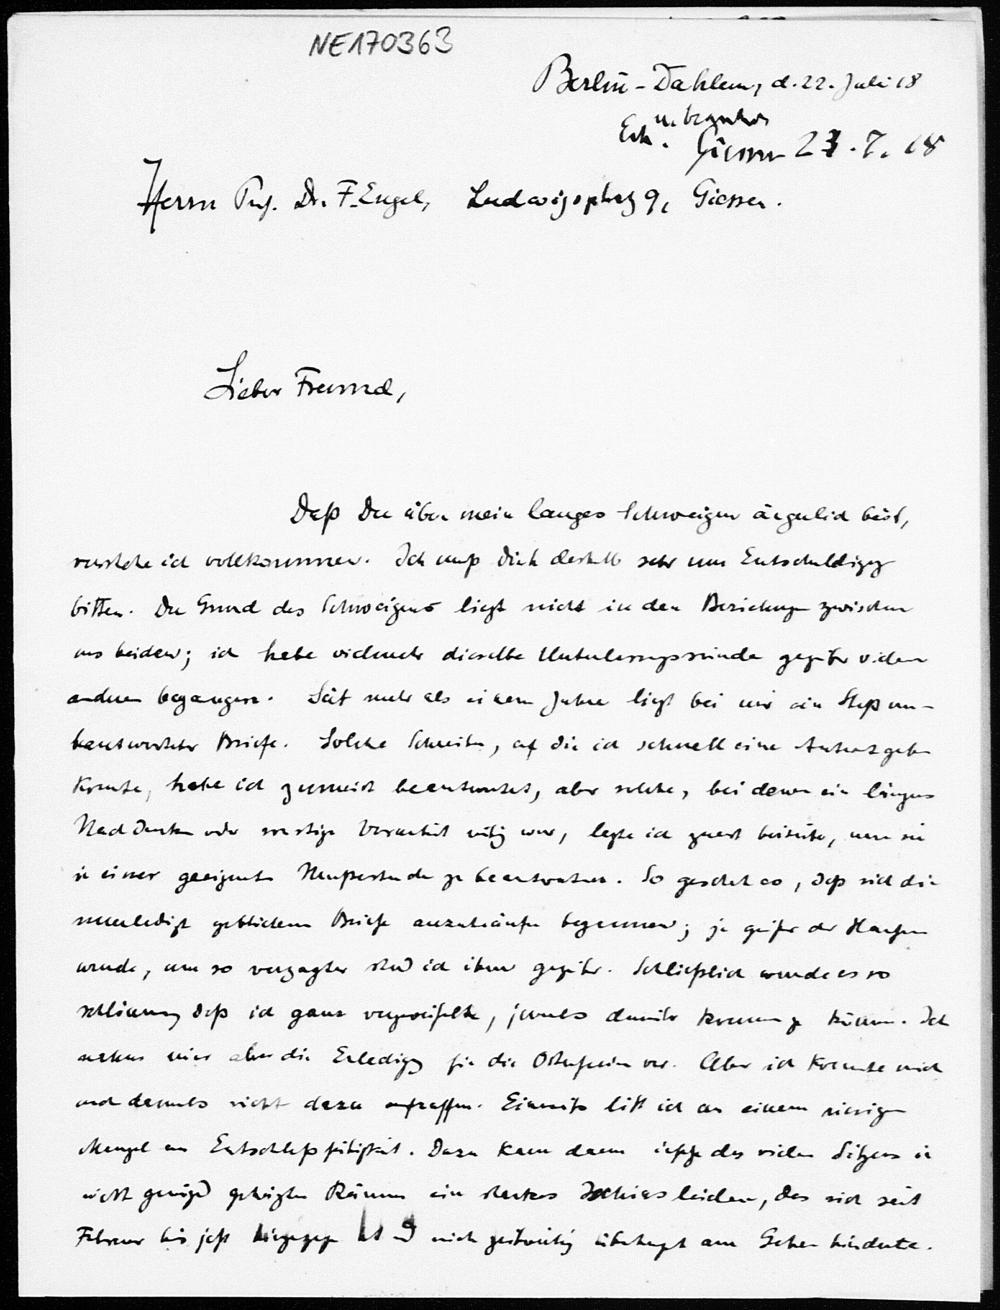 NE170363
Berlin-Dahlem, d. 22. Juli 18
Erh. u.
Giessen 23. 7. 18
Herrn Prof. Dr. F. Engel, Ludwigsplatz 9, Giessen.
Lieber Freund,
Daß Du über mein langes Schweigen ärgerlich bist,
verstehe ich vollkommen. Ich muß Dich deshalb sehr um Entschuldigung
bitten. Der Grund des Schweigens liegt nicht in den Beziehungen zwischen
uns beiden; ich habe vielmehr dieselbe Unterlassungssünde gegenüber vielen
anderen begangen. Seit mehr als einem Jahre liegt bei mir ein Stoß un-
beantworteter Briefe. Solche Schreiben, auf die ich schnell eine Antwort geben
konnte, habe ich zumeist beantwortet, aber solche, bei denen ein längeres
Nachdenken oder sonstige Vorarbeit nötig war, legte ich zuerst beiseite, um sie
in einer geeigneten Mußestunde zu beantworten. So geschah es, daß sich die
unerledigt gebliebenen Briefe anzuhäufen begannen; je größer der Haufen
wurde, um so verzagter stand ich ihm gegenüber. Schließlich wurde es so
schlimm, daß ich ganz verzweifelte, jemals damit kommen zu können. Ich
nahm mir aber die Erledigung für die Osterferien vor. Aber ich konnte mich
auch damals nicht dazu aufraffen. Einerseits litt ich an einem riesigen
Mangel an Entschlußfähigkeit. Dazu kam dann infolge des vielen Sitzens in
nicht genügend geheizten Räumen ein starkes Ischiasleiden, das sich seit
Februar bis jetzt hingezogen hat und mich zeitweilig überhaupt am Gehen hinderte.